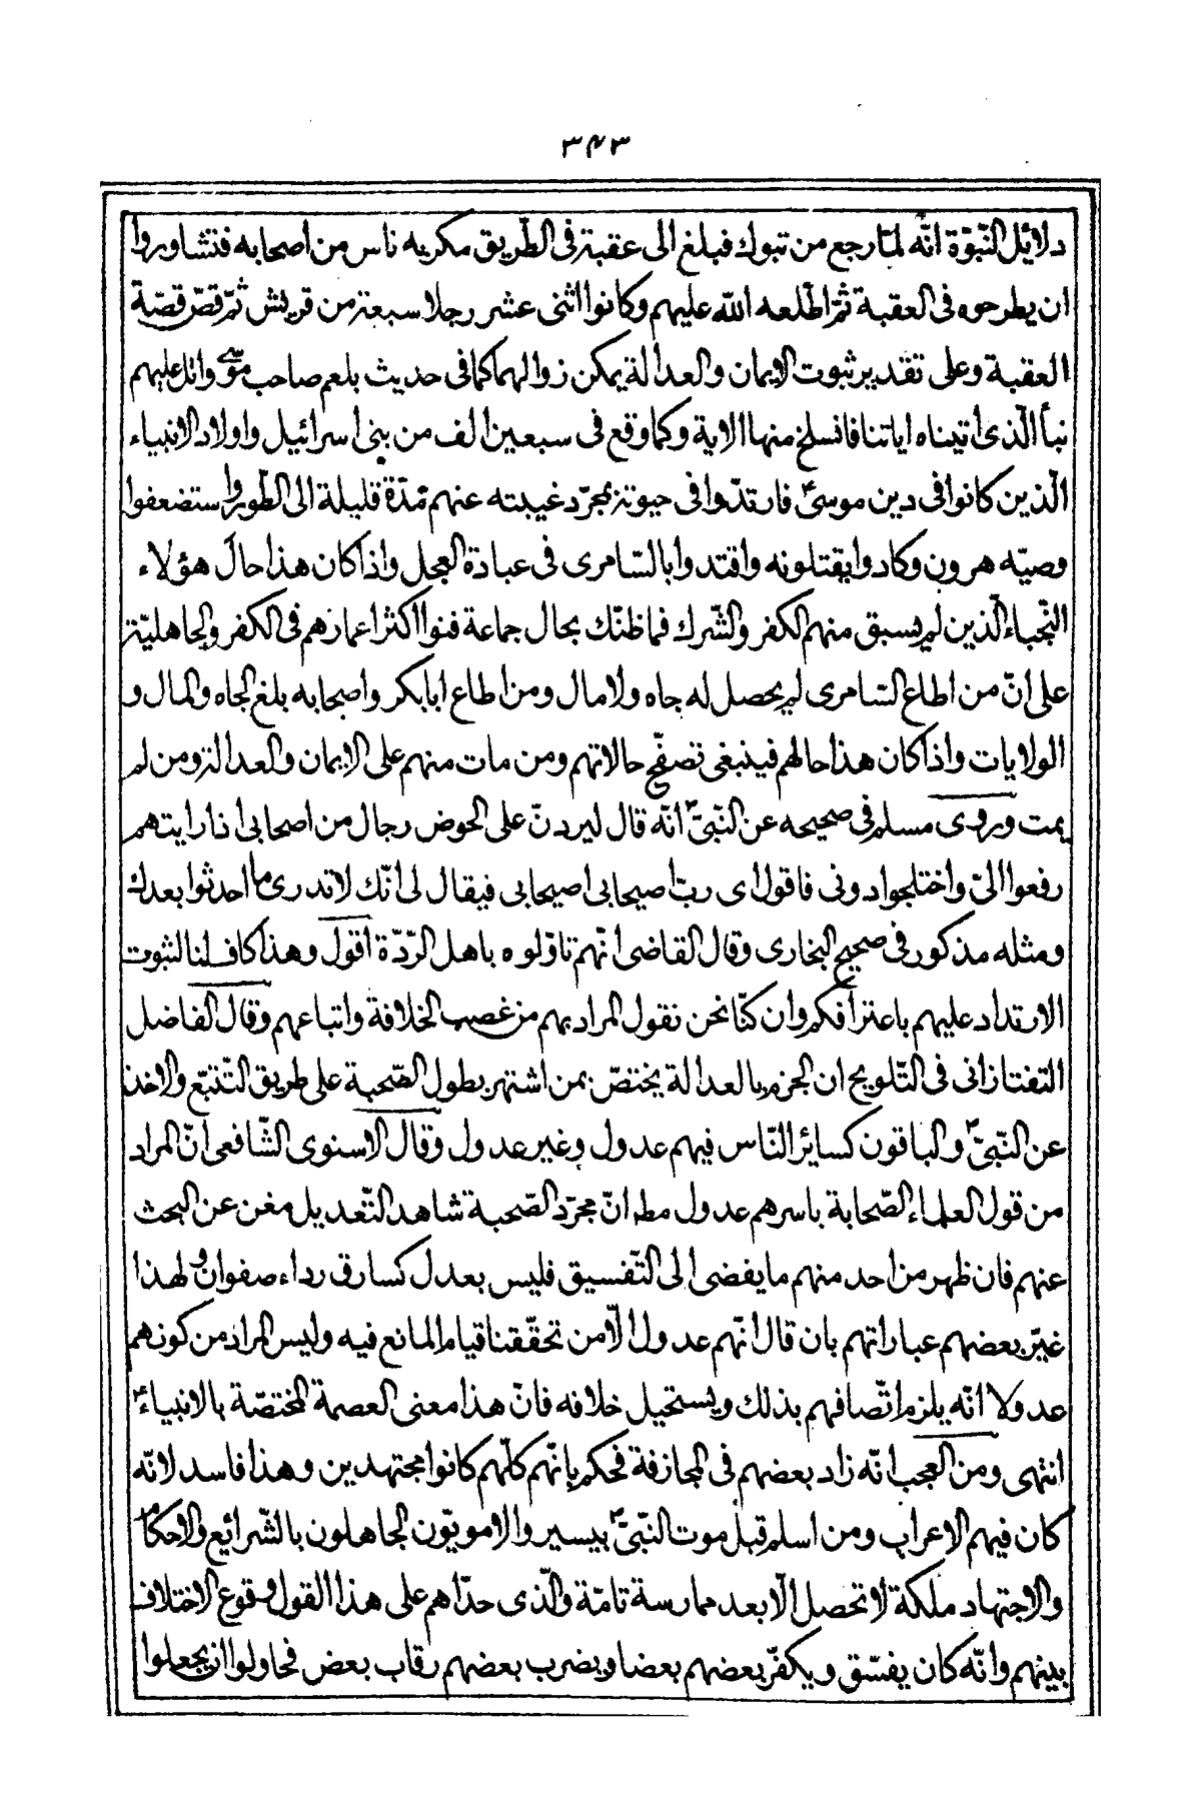 ٣٤٣
دلائل النّبوّة انّه لمّا رجع من تبوك فبلغ الى عقبة فى الطّريق مكر به ناس من اصحابه فتشاوروا
ان يطرحوه فى العقبة ثمّ اطلعه الله عليهم وكانوا اثنى عشر رجلا سبعة من قريش ثمّ قصّ قصّة
العقبة وعلى تقدير ثبوت الايمان والعدالة يمكن زوالهما كما فى حديث بلعم صاحب موسى واتل عليهم
نبأ الّذى اتيناه اياتنا فانسلخ منها الاية وكما وقع فى سبعين الف من بنى اسرائيل واولاد الانبياء
الّذين كانوا فى دين موسىؑ فارتدّوا فى حيوته بمجرّد غيبته عنهم مدّة قليلة الى الطّور واستضعفوا
وصيّه هرون وكادوا يقتلونه واقتدوا بالسّامرى فى عبادة العجل واذا كان هذا حال هؤلاء
النّجباء الّذين لم يسبق منهم الكفر والشّرك فما ظنّك بحال جماعة فنوا اكثر اعمارهم فى الكفر والجاهليّة
على انّ من اطاع السّامرى لم يحصل له جاه ولا مال ومن اطاع ابابكر واصحابه بلغ الجاه والمال و
الولايات واذا كان هذا حالهم فينبغى تصفّح حالاتهم ومن مات منهم على الايمان والعدالة ومن لم
يمت وروى مسلم فى صحيحه عن النّبىّؐ انّه قال ليردنّ على الحوض رجال من اصحابى اذا رايتهم
رفعوا الىّ واختلجوا دونى فاقول اى ربّ اصيحابى اصيحابى فيقال لى انّك لا تدرى ما احدثوا بعدك
ومثله مذكور فى صحيح البخارى وقال القاضى انّهم تاوّلوه باهل الرّدّة اقول وهذا كاف لنا لثبوت
الارتداد عليهم باعترافكم وان كنّا نحن نقول المراد بهم من غصب الخلافة واتباعهم وقال الفاضل
التفتازانى فى التّلويح ان الجزم بالعدالة يختصّ بمن اشتهر بطول الصّحبة على طريق التّتبّع والاخذ
عن النّبىّؐ والباقون كسائر النّاس فيهم عدول وغير عدول وقال الاسنوى الشّافعى انّ المراد
من قول العلماء الصّحابة باسرهم عدول مط انّ مجرّد الصّحبة شاهد التّعديل مغن عن البحث
عنهم فان ظهر من احد منهم ما يفضى الى التّفسيق فليس بعدل كسارق رداء صفوان ولهذا
غيّر بعضهم عباراتهم بان قال انّهم عدول الّا من تحقّقنا قيام المانع فيه وليس المراد من كونهم
عدولا انّه يلزم اتّصافهم بذلك ويستحيل خلافه فانّ هذا معنى العصمة المختصّة بالانبياءؑ
انتهى ومن العجب انّه زاد بعضهم فى المجازفة فحكم بانّهم كلّهم كانوا مجتهدين وهذا فاسد لانّه
كان فيهم الاعراب ومن اسلم قبل موت النّبىّؐ بيسير والامويّون الجاهلون بالشّرائع والاحكام
والاجتهاد ملكة لا تحصل الّا بعد ممارسة تامّة والّذى حدّاهم على هذا القول وقوع الاختلاف
بينهم وانّه كان يفسّق ويكفّر بعضهم بعضا ويضرب بعضهم رقاب بعض فحاولوا ان يجعلوا